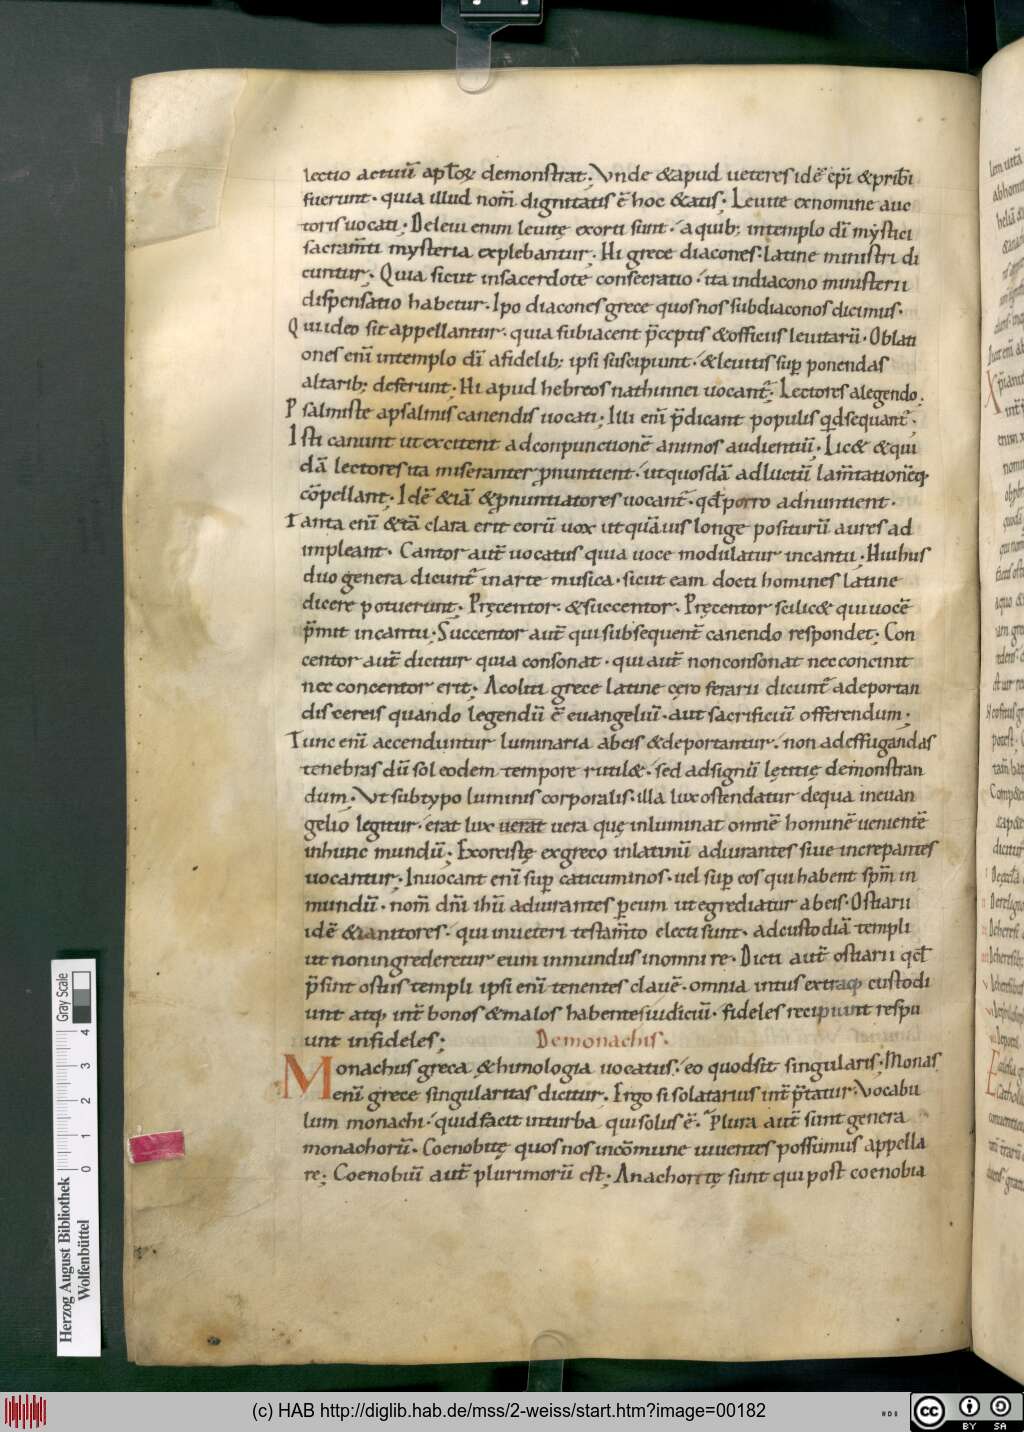 lectio actuū apl̄oꝝ demonstrat; Vnde &apud ueteres idē ep̄i &prib̄i
fuerunt · quia illud nom̄ dignitatis ē hoc &atis · Leuite exnomine auc
toris uocati; Deleui enim leuitę exorti sunt · aquib; intemplo dī mẏstici
sacram̄ti mẏsteria explebantur; Hi grece diacones · latine ministri di
cuntur; Quia sicut insacerdote consecratio · ita indiacono ministerii
dispensatio habetur · Ipo diacones grece quos nos subdiaconos dicimus ·
Qui ideo sit appellantur · quia subiacent p̄ceptis &officiis leuitarū · Oblati
ones enī intemplo dī afidelib; ipsi suscipiunt · &leuitis suꝑ ponendas
altarib; deferunt · Hi apud hebreos nathinnei uocant̄; Lectores alegendo.
Psalmiste apsalmis canendis uocati; Illi enī p̄dicant populis qd̄sequant̄ ·
Isti canunt ut excitent adconpunctionē animos audientiū; Lic& &qui
dā lectores ita miseranter ꝓnuntient · ut quosdā adluctū lam̄tationēqꝫ
cōpellant; Idē &iā &ꝓnuntiatores uocant̄ · qd̄ porro adnuntient ·
Tanta enī &tā clara erit eorū uox ut quāuis longe positurū aures ad
impleant · Cantor aut̄ uocatus quia uoce modulatur incantu; Huihus
duo genera dicunt̄ in arte musica · sicut eam docti homines latine
dicere potuerunt · Pręcentor · &succentor · Pręcentor scilic& qui uocē
p̄mit incantu; Succentor aut̄ qui subsequent̄ canendo respondet; Con
centor aut̄ dicitur quia consonat · qui aut̄ non consonat nec concinit
nec concentor erit; Acoliti grece latine cęro ferarii dicunt̄ adeportan
dis cereis quando legendū ē euangeliū · aut sacrificiū offerendum;
Tunc enī accenduntur luminaria abeis &deportantur · non adeffugandas
tenebras dū sol eodem tempore rutil& · sed adsignū lętitię demonstran
dum · Vt subtypo luminis corporalis · illa lux ostendatur dequa ineuan
gelio legitur · erat lux uerat uera quę inluminat omnē hominē uenientē
inhunc mundū; Exorcistę exgreco inlatinū adiurantes siue increpantes
uocantur; Inuocant enī suꝑ caticuminos · uel suꝑ eos qui habent spm̄ in
mundū · nom̄ dn̄i ihū adiurantes ꝑeum ut egrediatur abeis · Ostiarii
idē &ianitores · qui inueteri testam̄to electi sunt · adcustodiā templi
ut noningrederetur eum inmundus inomni re · Dicti aut̄ ostiarii qd̄
p̄sint ostiis templi ipsi enī tenentes clauē · omnia intus extraqꝫ custodi
unt atqꝫ int̄ bonos &malos habentes iudiciū · fideles recipiunt respu
unt infideles; Demonachis ·
Monachus greca &himologia uocatus · eo quod sit singularis; Monas
enī grece singularitas dicitur · Ergo si solatarius int̄ p̄tatur · Vocabu
lum monachi · quid facit inturba qui solus ē · Plura aut̄ sunt genera
monachorū · Coenobitę quos nos incōmune uiuentes possumus appella
re; Coenobiū aut̄ plurimorū est; Anachoritę sunt qui post coenobia
Herzog August Bibliothek
Wolfenbüttel
0 1 2 3 4
Gray Scale
(c) HAB http://diglib.hab.de/mss/2-weiss/start.htm?image=00182
cc BY SA